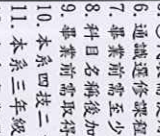 6. 通識選修課程
7. 畢業前需至少
8. 科目名稱後加
9. 畢業前需取得
10. 本系四技二
11 本系三年級